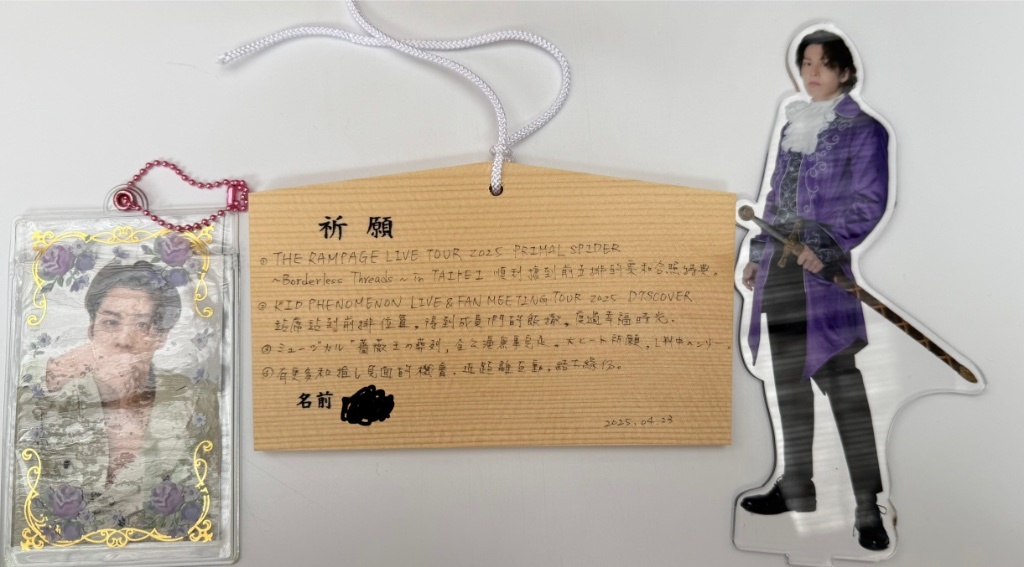 祈願
① THE RAMPAGE LIVE TOUR 2025 PRIMAL SPIDER
~Borderless Threads~ in TAIPEI 順利搶到前五排的票和合照特典。
② KID PHENOMENON LIVE & FAN MEETING TOUR 2025 DISCOVER
站席站到前排位置。得到成員們的飯撒。度過幸福時光.
③ ミュージカル『薔薇王の葬列』全公演無事完走。大ヒット祈願。
④ 有更多和推し見面的機會。近距離互動。結下緣份。
名前
2025.04.23